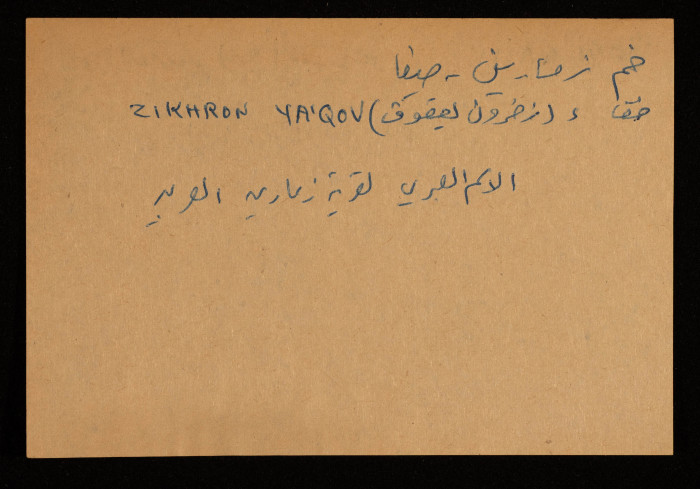 زمارين - حيفا
(زخرون يعقوب) ZIKHRON YA'QOV
الاسم العبري لقرية زمارين العربية